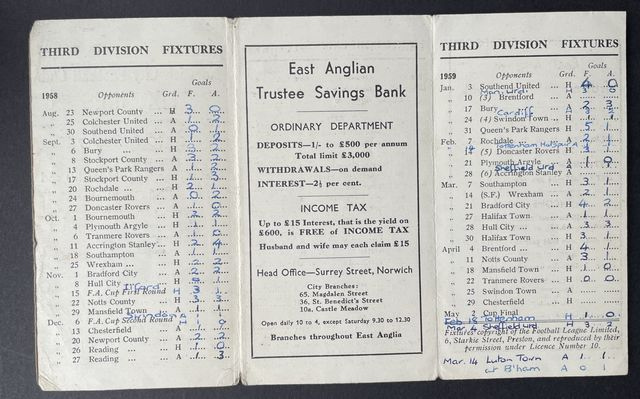 THIRD DIVISION FIXTURES
Goals
1958 Opponents Grd. F. A.
Aug. 23 Newport County ... H 3 0
" 25 Colchester United ... A 1 2
" 30 Southend United ... A 0 1
Sept. 3 Colchester United ... H 1 2
" 6 Bury ... H 3 2
" 8 Stockport County ... A 2
" 13 Queen's Park Rangers A 1 2
" 17 Stockport County ... H 3 1
" 20 Rochdale ... H 2 1
" 24 Bournemouth ... A 0 2
" 27 Doncaster Rovers ... A 1 0
Oct. 1 Bournemouth ... H 2 2
" 4 Plymouth Argyle ... H 1 1
" 6 Tranmere Rovers ... A 0
" 11 Accrington Stanley ... H 2 4
" 18 Southampton ... A 1 1
" 25 Wrexham ... H 2 2
Nov. 1 Bradford City ... A 2 2
" 8 Hull City ... H
Ilford
" 15 F.A. Cup First Round H 3 1
" 22 Notts County ... H 3 3
" 29 Mansfield Town ... A 1 1
Swindon A
Dec. 6 F.A. Cup Second Round 1 1
" 13 Chesterfield ... A 1
" 20 Newport County ... A 2 2
" 26 Reading ... H 1 0
" 27 Reading ... A 1 3
East Anglian
Trustee Savings Bank
ORDINARY DEPARTMENT
DEPOSITS—1/- to £500 per annum
Total limit £3,000
WITHDRAWALS—on demand
INTEREST—2½ per cent.
INCOME TAX
Up to £15 Interest, that is the yield on
£600, is FREE of INCOME TAX
Husband and wife may each claim £15
Head Office—Surrey Street, Norwich
City Branches:
65, Magdalen Street
36, St. Benedict's Street
10a, Castle Meadow
Open daily 10 to 4, except Saturday 9.30 to 12.30
Branches throughout East Anglia
THIRD DIVISION FIXTURES
Goals
1959 Opponents Grd. F. A.
Jan. 3 Southend United ... H 4 0
Man. Utd. H 3 0
" 10 (3) Brentford ... A
" 17 Bury ... A 2 3
Cardiff
" 24 (4) Swindon Town ... H
" 31 Queen's Park Rangers H 5 1
Feb. 7 Rochdale ... A 2 1
Tottenham Hotspur A
14 (5) Doncaster Rovers H 3 1
" 21 Plymouth Argyle ... A 1 0
Sheffield Utd
" 28 (6) Accrington Stanley A
Mar. 7 Southampton ... H 3 1
" 14 (S.F.) Wrexham ... A 2 1
" 21 Bradford City ... H 4 2
" 27 Halifax Town ... A 1 1
" 28 Hull City ... A 3 3
" 30 Halifax Town ... H 3 1
April 4 Brentford ... H 4 1
" 11 Notts County ... A 3 1
" 18 Mansfield Town ... H 1 0
" 22 Tranmere Rovers ... H 0 0
" 25 Swindon Town ... A
" 29 Chesterfield ... H
May 2 Cup Final
Feb 18 Tottenham H 1 0
Mar 4 Sheffield Utd H 3 2
Fixtures copyright of the Football League Limited,
6, Starkie Street, Preston, and reproduced by their
permission under Licence Number 10.
Mar. 14 Luton Town A 1 1
at B'ham A 0 1